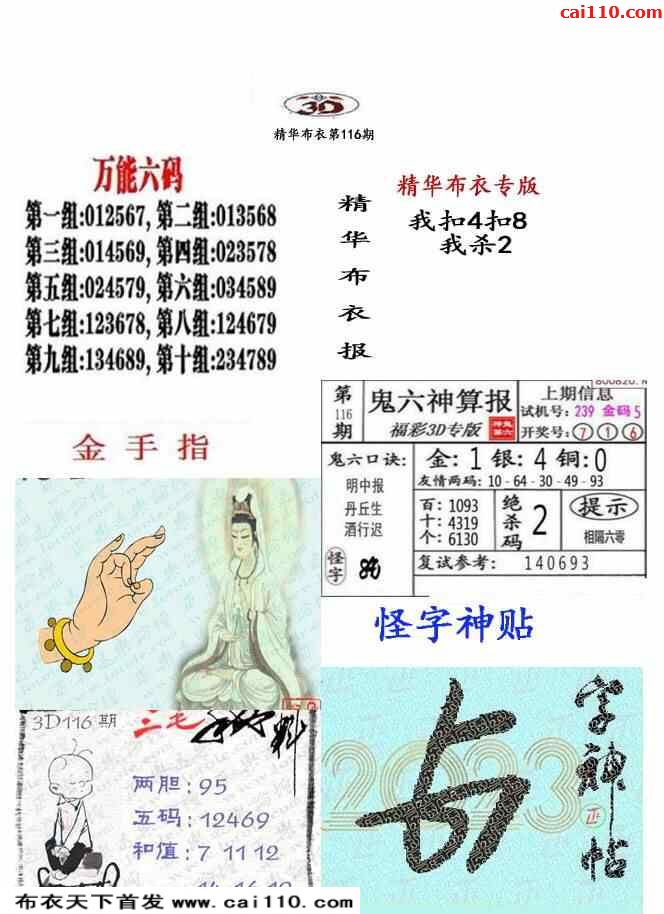 cai110.com
3D
精华布衣第116期
万能六码
第一组:012567, 第二组:013568
第三组:014569, 第四组:023578
第五组:024579, 第六组:034589
第七组:123678, 第八组:124679
第九组:134689, 第十组:234789
精华布衣报
精华布衣专版
我扣4扣8
我杀2
金手指
第116期
鬼六神算报
福彩3D专版
上期信息
试机号: 239 金码5
开奖号: 7 1 6
鬼六口诀:
明中报
丹丘生
酒行迟
怪字
金: 1 银: 4 铜: 0
友情两码: 10-64-30-49-93
百: 1093
十: 4319
个: 6130
绝杀码 2
提示
相隔六零
复试参考: 140693
怪字神贴
3D116期
三毛
料
两胆: 95
五码: 12469
和值: 7 11 12
2023
字神帖
正
布衣天下首发 www.cai110.com